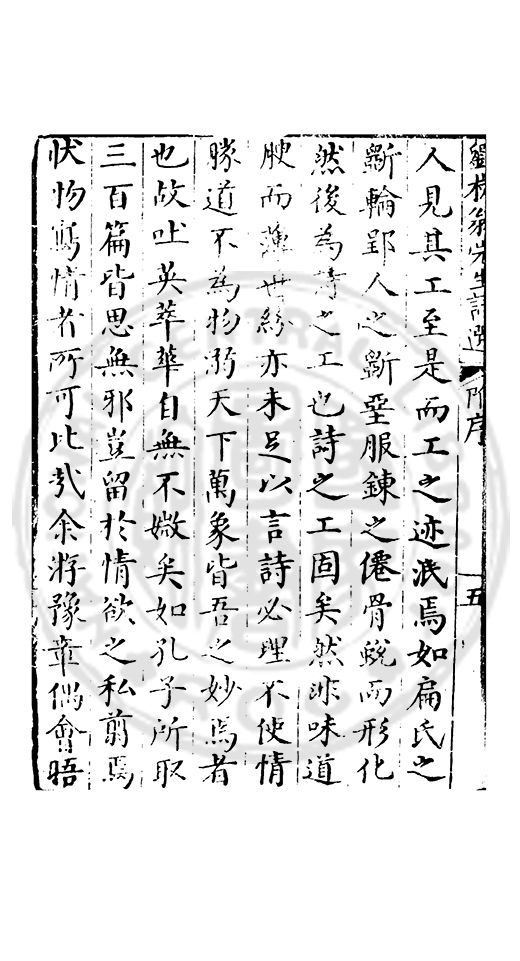 劉 先生詩選 附序
五
人見其工至是而工之迹泯焉如扁氏之
斲輪郢人之斲堊服鍊之僊骨蛻而形化
然後為詩之工也詩之工固矣然非味道
腴而薄世紛亦未足以言詩必理不使情
勝道不為物溺天下萬象皆吾之妙焉者
也故吐英萃華自無不媺矣如孔子所取
三百篇皆思無邪豈留於情欲之私剪焉
狀物寫情者所可比哉余游豫章偶會晤